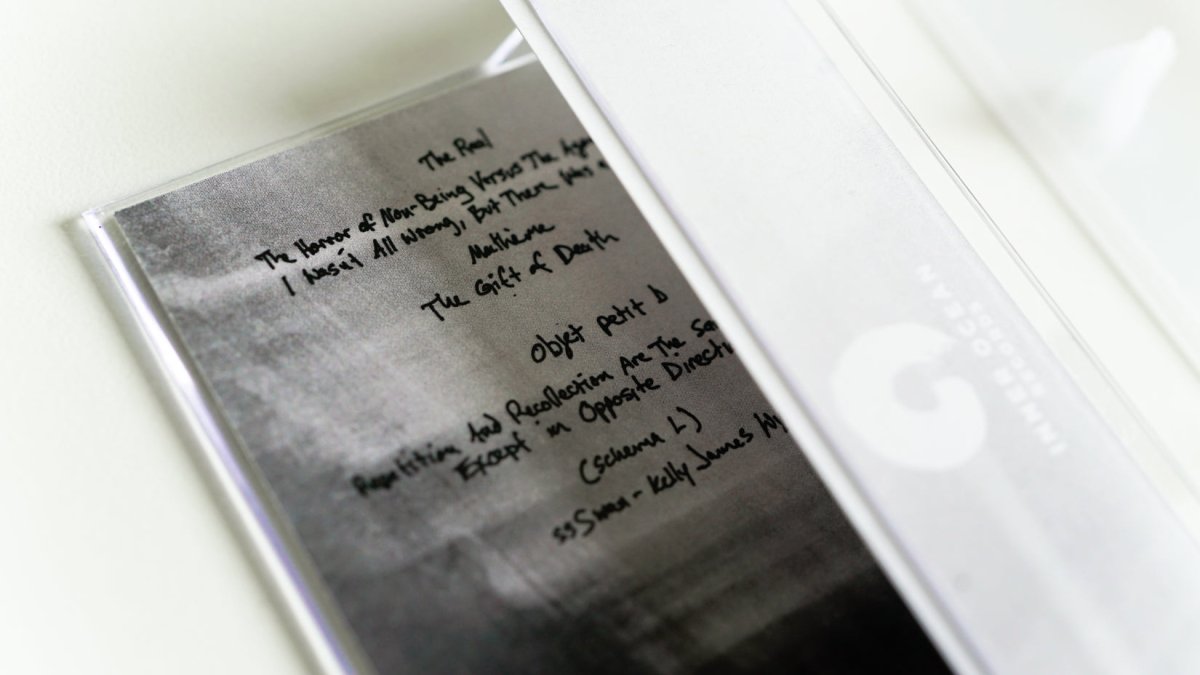 The Real
The Horror of Non-Being Versus The
I Wasn't All Wrong, But There Was
Matheme
The Gift of Death
Objet petit b
Repetition And Recollection Are The
Except in Opposite
(schema L)
Kelly James
INNER OCEAN
RECORDS